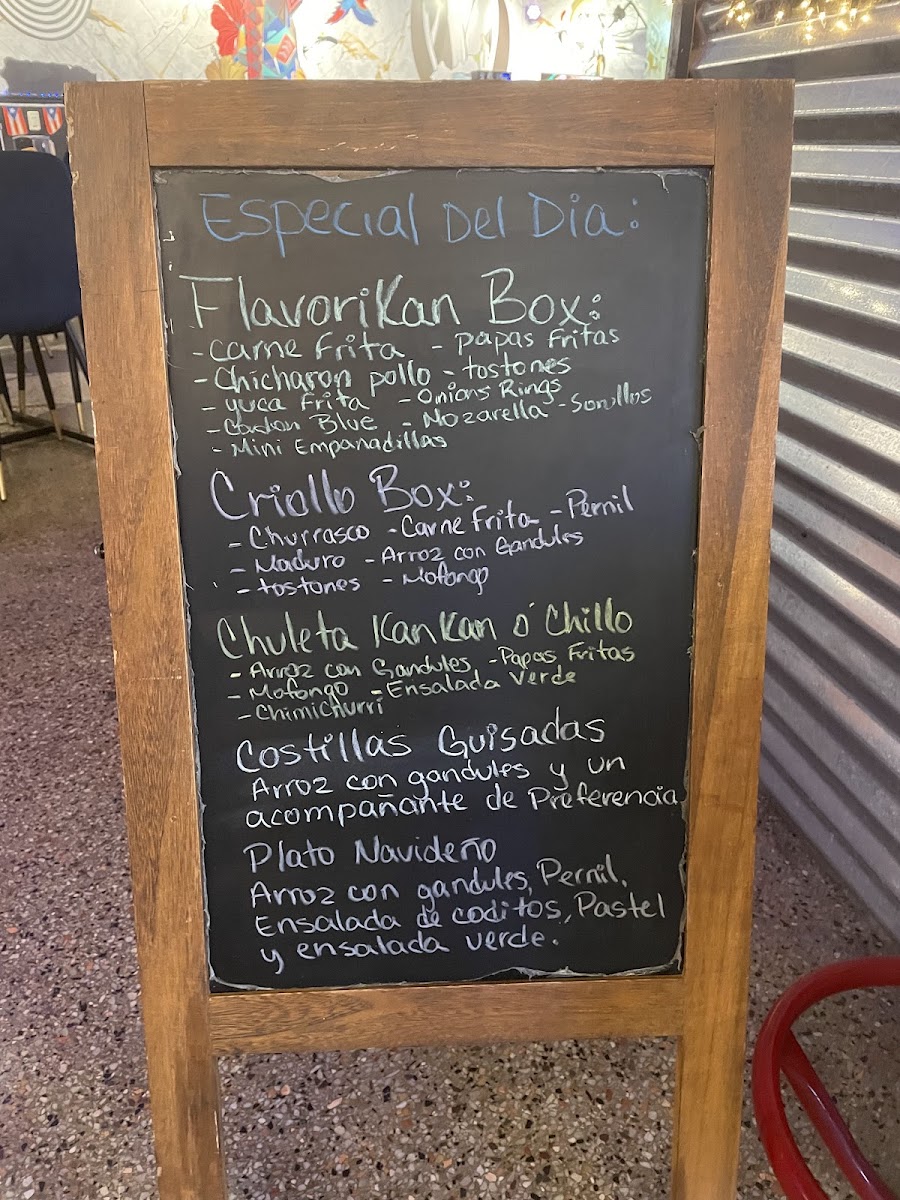 Especial Del Dia:
Flavorikan Box:
- Carne Frita - Papas Fritas
- Chicharon pollo - tostones
- yuca Frita - Onions Rings
- Cordon Blue - Mozarella - Sorullos
- Mini Empanadillas
Criollo Box:
- Churrasco - Carne Frita - Pernil
- Maduro - Arroz con Gandules
- tostones - Mofongo
Chuleta KanKan ó Chillo
- Arroz con Gandules - Papas Fritas
- Mofongo - Ensalada Verde
- Chimichurri
Costillas Guisadas
Arroz con gandules y un
acompañante de Preferencia
Plato Navideño
Arroz con gandules, Pernil,
Ensalada de coditos, Pastel
y ensalada verde.